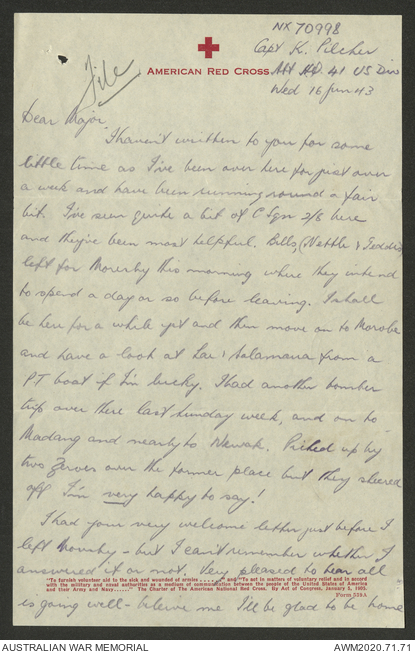 NX 70998
Capt K. Pilcher
File
AMERICAN RED CROSS
Att HQ 41 US Div
Wed 16 Jun 43
Dear Major
I haven't written to you for some
little time as I've been over here for just over
a week and have been running round a fair
bit. I've seen quite a bit of C Sgn 2/5 here
and they've been most helpful. Bills, (Nettle &
left for Moresby this morning where they intend
to spend a day or so before leaving. I shall
be here for a while yet and then move on to Morobe
and have a look at Lae & Salamaua from a
PT boat if I'm lucky. I had another bomber
trip over there last Sunday week, and on to
Madang and nearly to Wewak. Picked up by
two Zeroes over the former place but they sheered
off I'm very happy to say!
I had your very welcome letter just before I
left Moresby - but I can't remember whether I
answered it or not. Very pleased to hear all
"To furnish volunteer aid to the sick and wounded of armies . . . . . ." and "To act in matters of voluntary relief and in accord
with the military and naval authorities as a medium of communication between the people of the United States of America
and their Army and Navy......" The Charter of The American National Red Cross. By Act of Congress, January 5, 1905.
Form 539A
is going well - believe me I'll be glad to be home
AUSTRALIAN WAR MEMORIAL
AWM2020.71.71